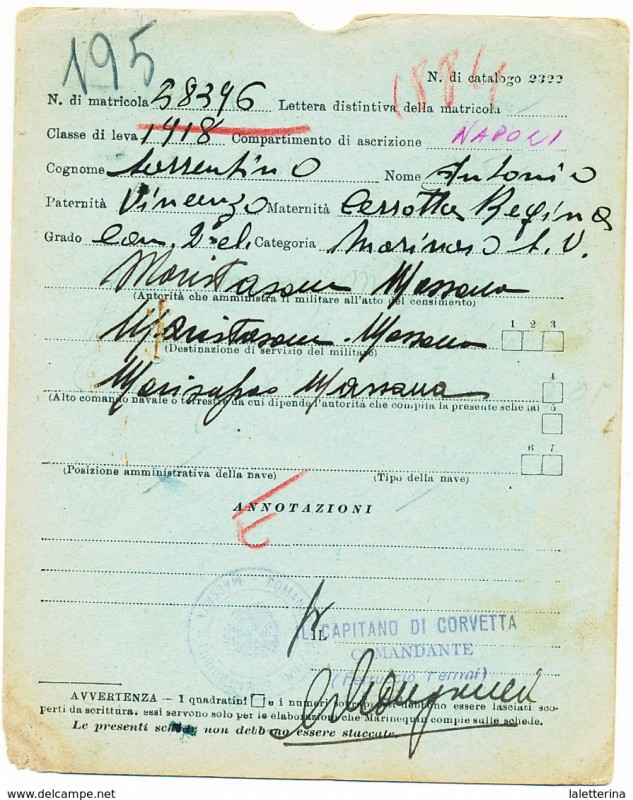 195
1884
N. di catalogo 2322
N. di matricola 58396 Lettera distintiva della matricola
Classe di leva 1918 Compartimento di ascrizione NAPOLI
Cognome Sorrentino Nome Antonio
Paternità Vincenzo Maternità Cerrotta Regina
Grado Com. 2ª cl. Categoria Marinaio S.V.
Maristasom Massaua
(Autorità che amministra il militare all'atto del censimento)
Maristasom Massaua 1 2 3
(Destinazione di servizio del militare)
Massaua 4
(Alto comando navale o terrestre da cui dipende l'autorità che compila la presente scheda) 5
6 7
(Posizione amministrativa della nave) (Tipo della nave)
ANNOTAZIONI
E
p
IL CAPITANO DI CORVETTA
IL
COMANDANTE
(Ferruccio Termi)
AVVERTENZA - I quadratini □ e i numeri sovrapposti debbono essere lasciati sco-
perti da scrittura. essi servono solo per le elaborazioni che Marinequip compie sulle schede.
Le presenti schede non debbono essere staccate.
www.delcampe.net laletterina